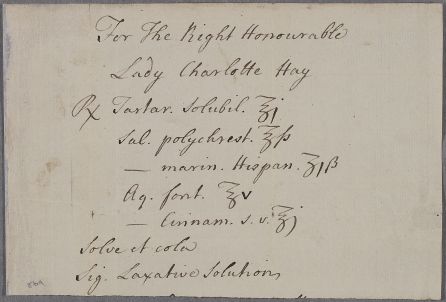 For The Right Honourable
Lady Charlotte Hay
℞ Tartar. Solubil. ℥j
Sal. polychrest. ℥ſs
— marin. Hispan. ʒjß
Aq. font. ℥v
— Cinnam. s. v. ℥j
Solve et cola
Sig. Laxative Solution,